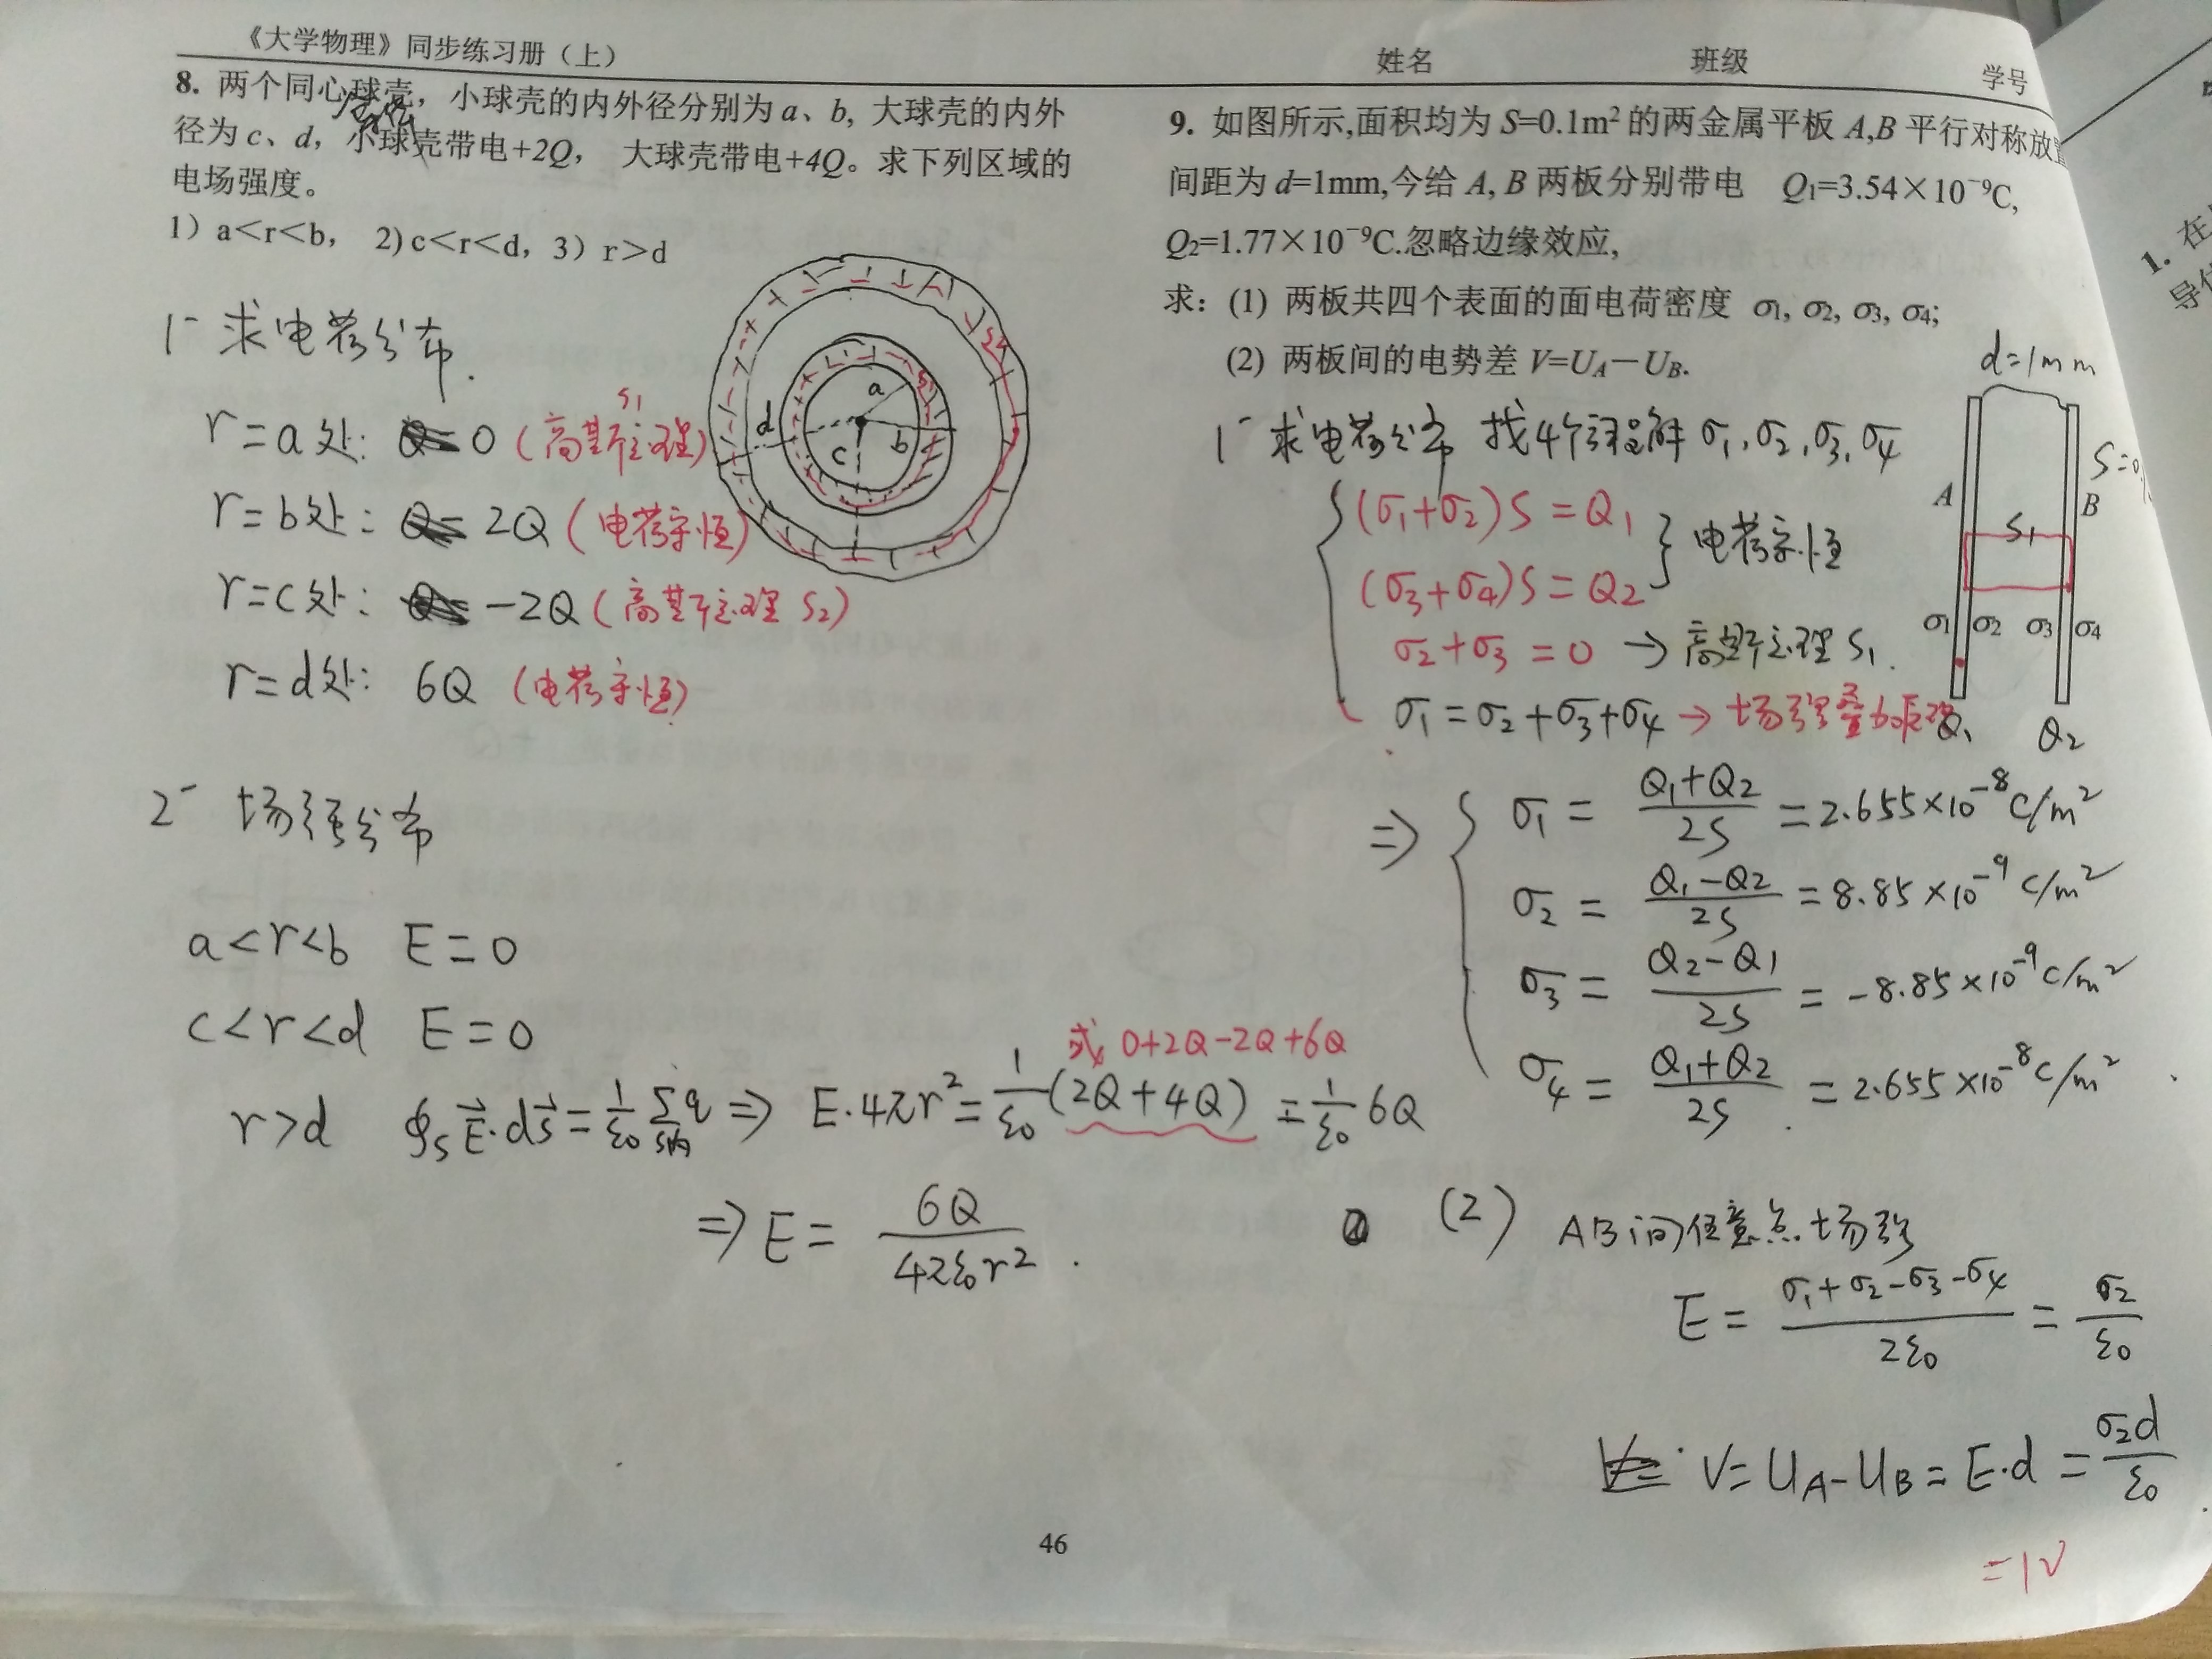 《大学物理》同步练习册（上）
姓名 班级 学号
8. 两个同心球壳，小球壳的内外径分别为 a、b, 大球壳的内外
径为 c、d，小球壳带电+2Q， 大球壳带电+4Q。求下列区域的
电场强度。
1）a＜r＜b， 2) c＜r＜d，3）r＞d
1- 求电荷分布.
r=a处: 0 (高斯定理) S1
r=b处: 2Q (电荷守恒)
r=c处: -2Q (高斯定理 S2)
r=d处: 6Q (电荷守恒)
a
b
c
d
S1
S2
2- 场强分布
a<r<b E=0
c<r<d E=0
或 0+2Q-2Q+6Q
r>d ∮S E⃗·dS⃗ = 1/ε0 Σ S内 q ⇒ E·4πr² = 1/ε0 (2Q+4Q) = 1/ε0 6Q
⇒ E = 6Q/4πε0r² .
9. 如图所示,面积均为 S=0.1m² 的两金属平板 A,B 平行对称放置
间距为 d=1mm,今给 A, B 两板分别带电 Q1=3.54×10⁻⁹C,
Q2=1.77×10⁻⁹C.忽略边缘效应,
求：(1) 两板共四个表面的面电荷密度 σ1, σ2, σ3, σ4;
(2) 两板间的电势差 V=UA－UB.
d=1mm
1- 求电荷分布 找4个方程解 σ1,σ2,σ3,σ4
(σ1+σ2)S = Q1
(σ3+σ4)S = Q2
电荷守恒
σ2+σ3 = 0 → 高斯定理 S1.
σ1 = σ2+σ3+σ4 → 场强叠加原理
A
B
S1
σ1 σ2 σ3 σ4
Q1 Q2
⇒ σ1 = Q1+Q2/2S = 2.655×10⁻⁸ C/m²
σ2 = Q1-Q2/2S = 8.85×10⁻⁹ C/m²
σ3 = Q2-Q1/2S = -8.85×10⁻⁹ C/m²
σ4 = Q1+Q2/2S = 2.655×10⁻⁸ C/m²
(2) AB间任意点场强
E = σ1+σ2-σ3-σ4/2ε0 = σ2/ε0
V = UA-UB = E·d = σ2d/ε0
=1V
46
1. 在